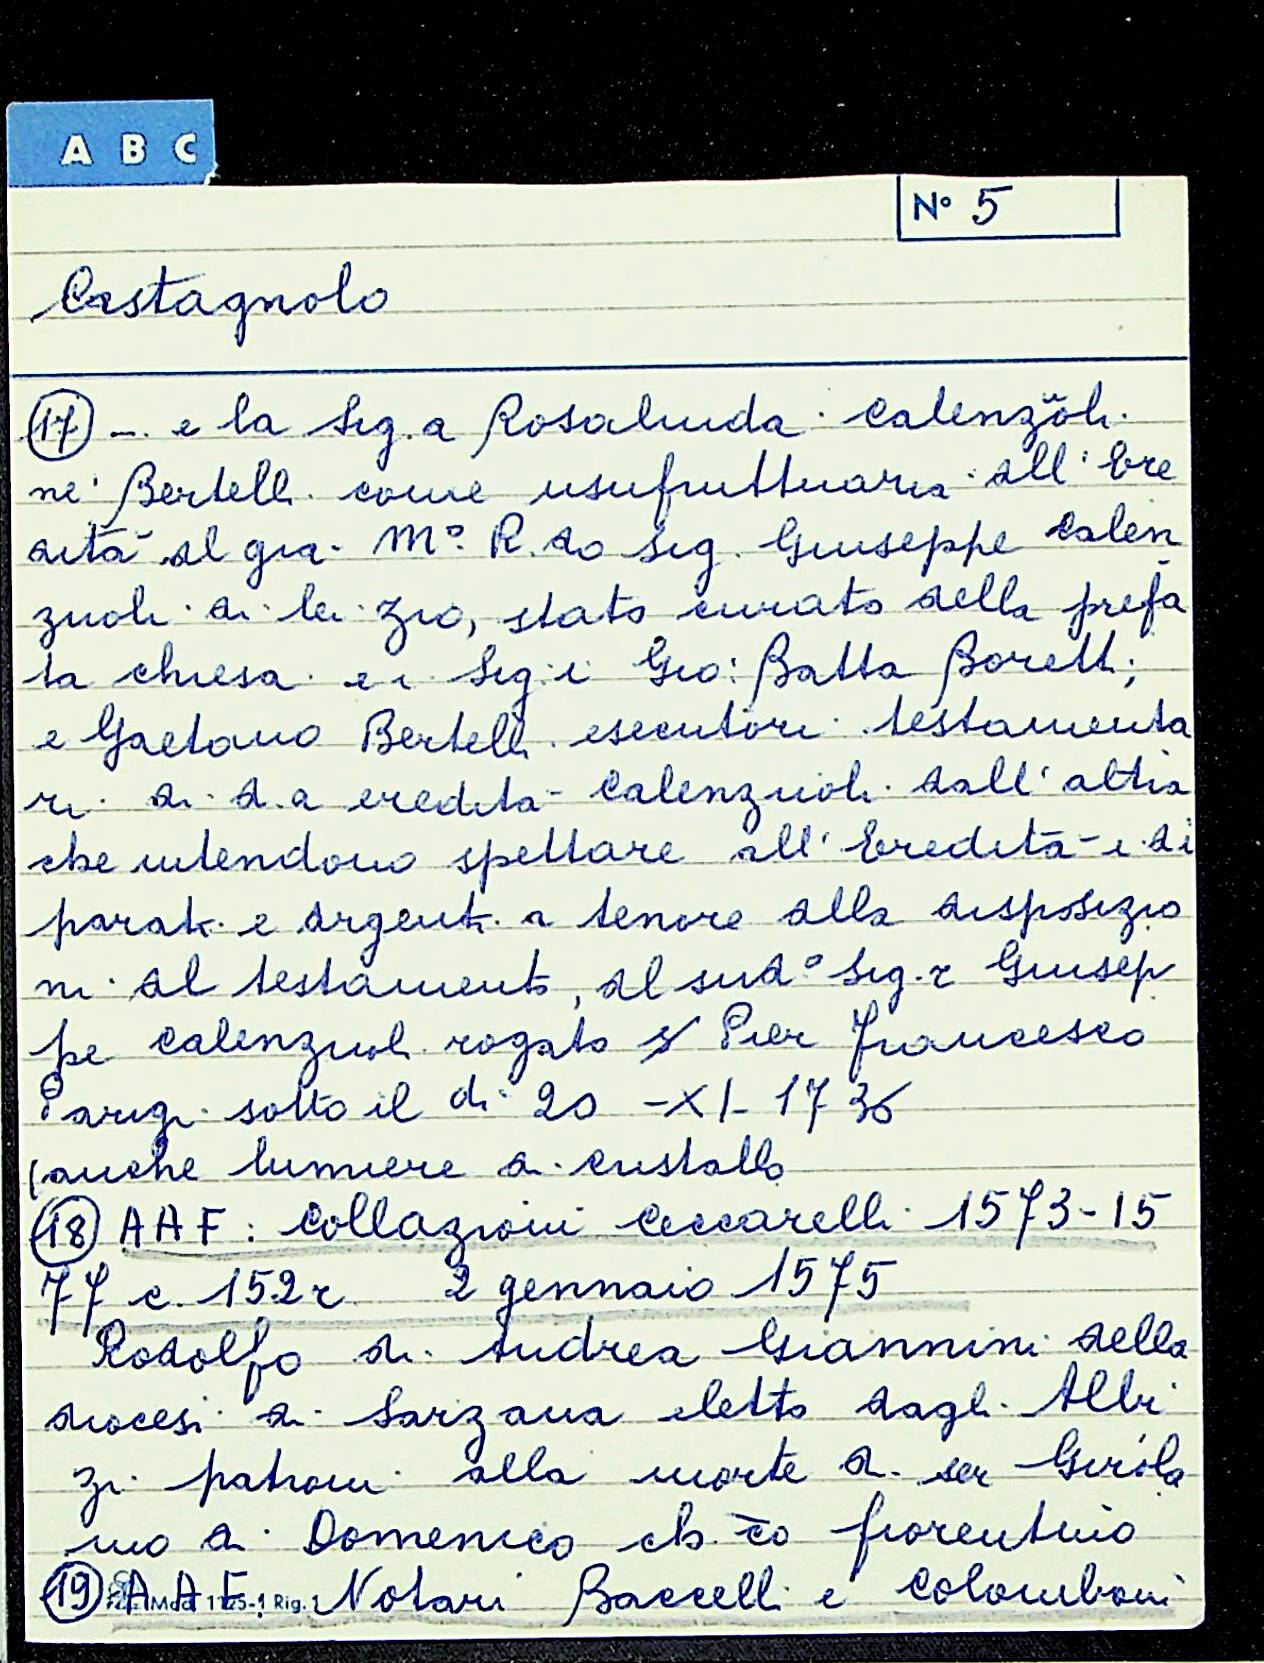 A B C
N° 5
Castagnolo
(17) - e la Sig.a Rosalinda Calenzuoli
ne' Bertelli come usufruttuaria dell'Ere
dità del già M.° R.do Sig. Giuseppe Calen
zuoli di lei zio, stato curato della prefa
ta chiesa e i Sig.i Gio: Batta Boretti;
e Gaetano Bertelli esecutori testamenta
ri di d.a eredità Calenzuoli dall'altra
che intendono spettare all'Eredità i di
parati e argenti a tenore della disposizio
ni del testamento, del sud° Sig.r Giusep
pe Calenzuoli rogato Pier Francesco
Parigi sotto il dì 20 -XI- 1736
(anche lumiere di cristallo
(18) AAF: Collazioni Ceccarelli 1573-15
77 c. 152r 2 gennaio 1575
Rodolfo di Andrea Giannini della
diocesi di Sarzana eletto dagli Albi
zi patroni alla morte di ser Girola
mo di Domenico ch.co fiorentino
(19) AAF: Notari Baccelli e Colomboni
Mod 1125-1 Rig. 1